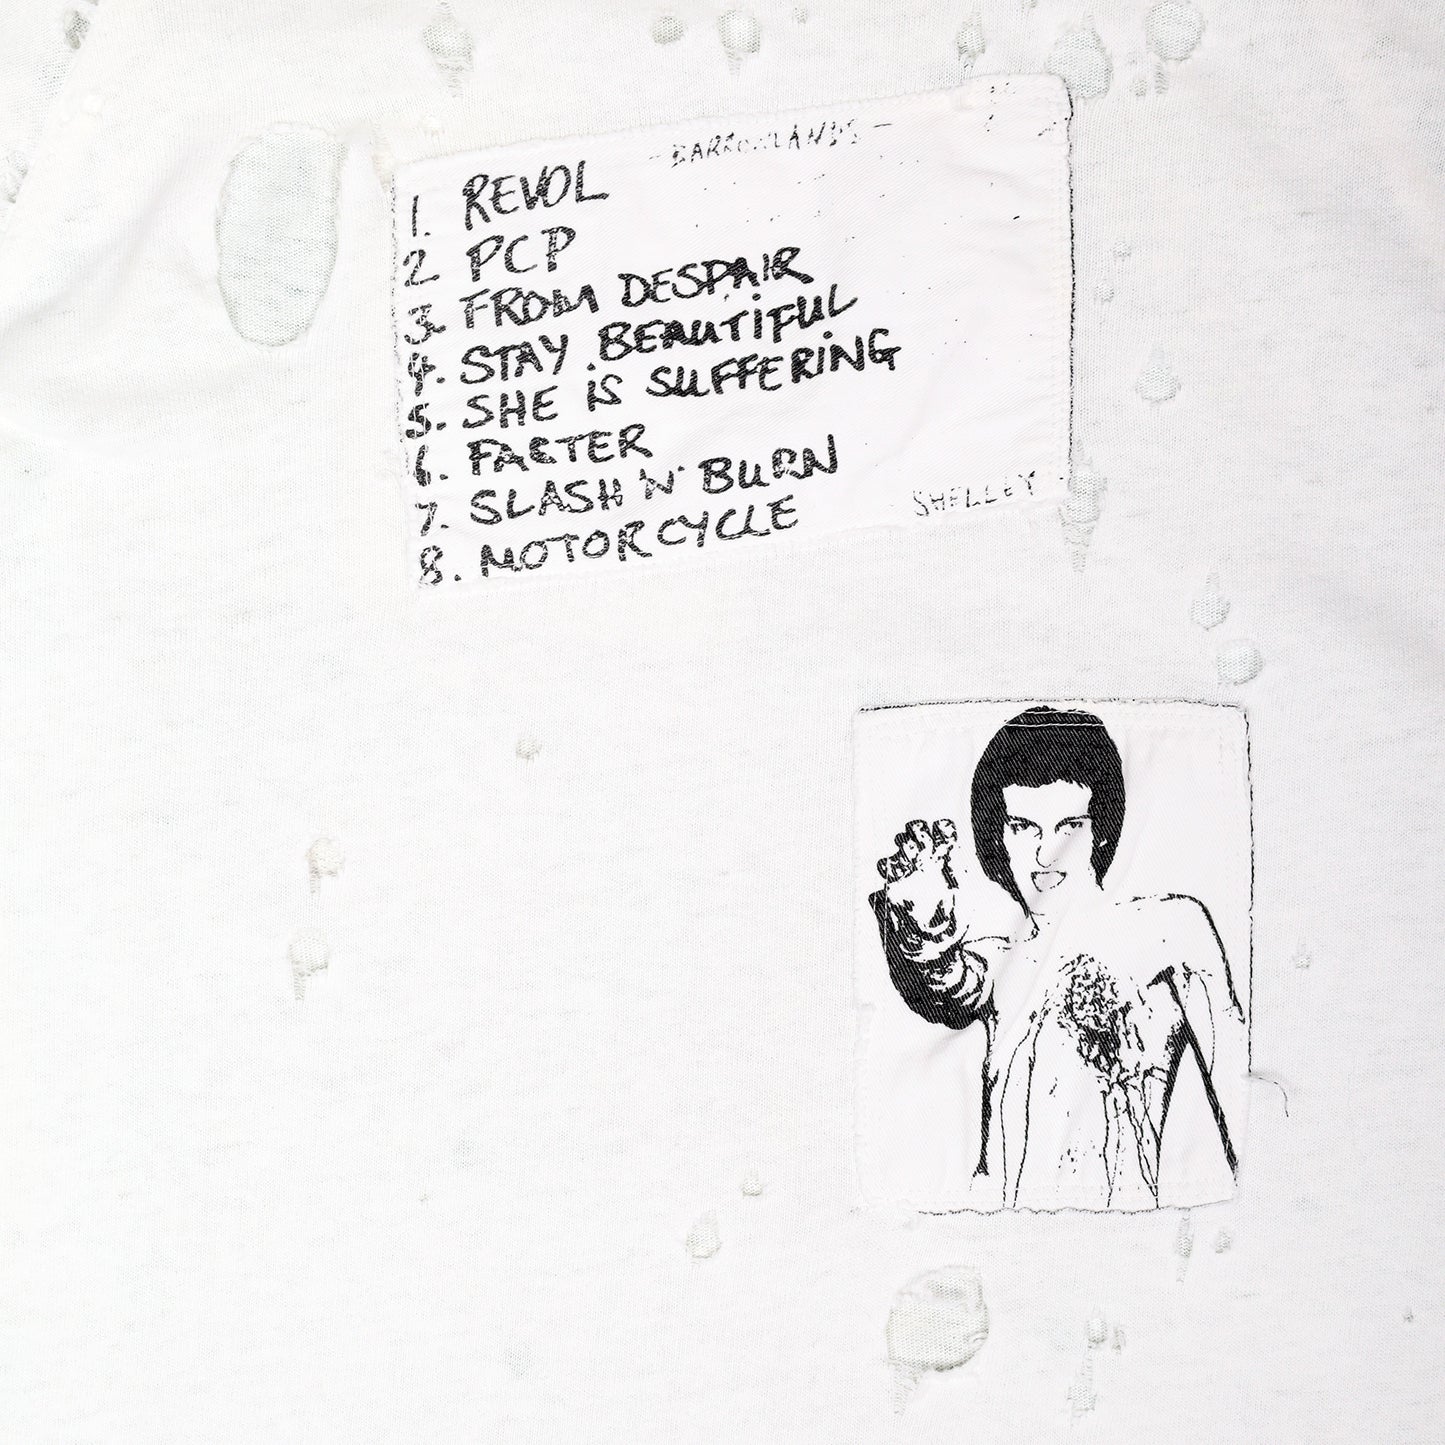 - BARROWLANDS -
1. REVOL
2. PCP
3. FROM DESPAIR
4. STAY BEAUTIFUL
5. SHE IS SUFFERING
6. FASTER
7. SLASH 'N' BURN
8. MOTORCYCLE
SHELLEY